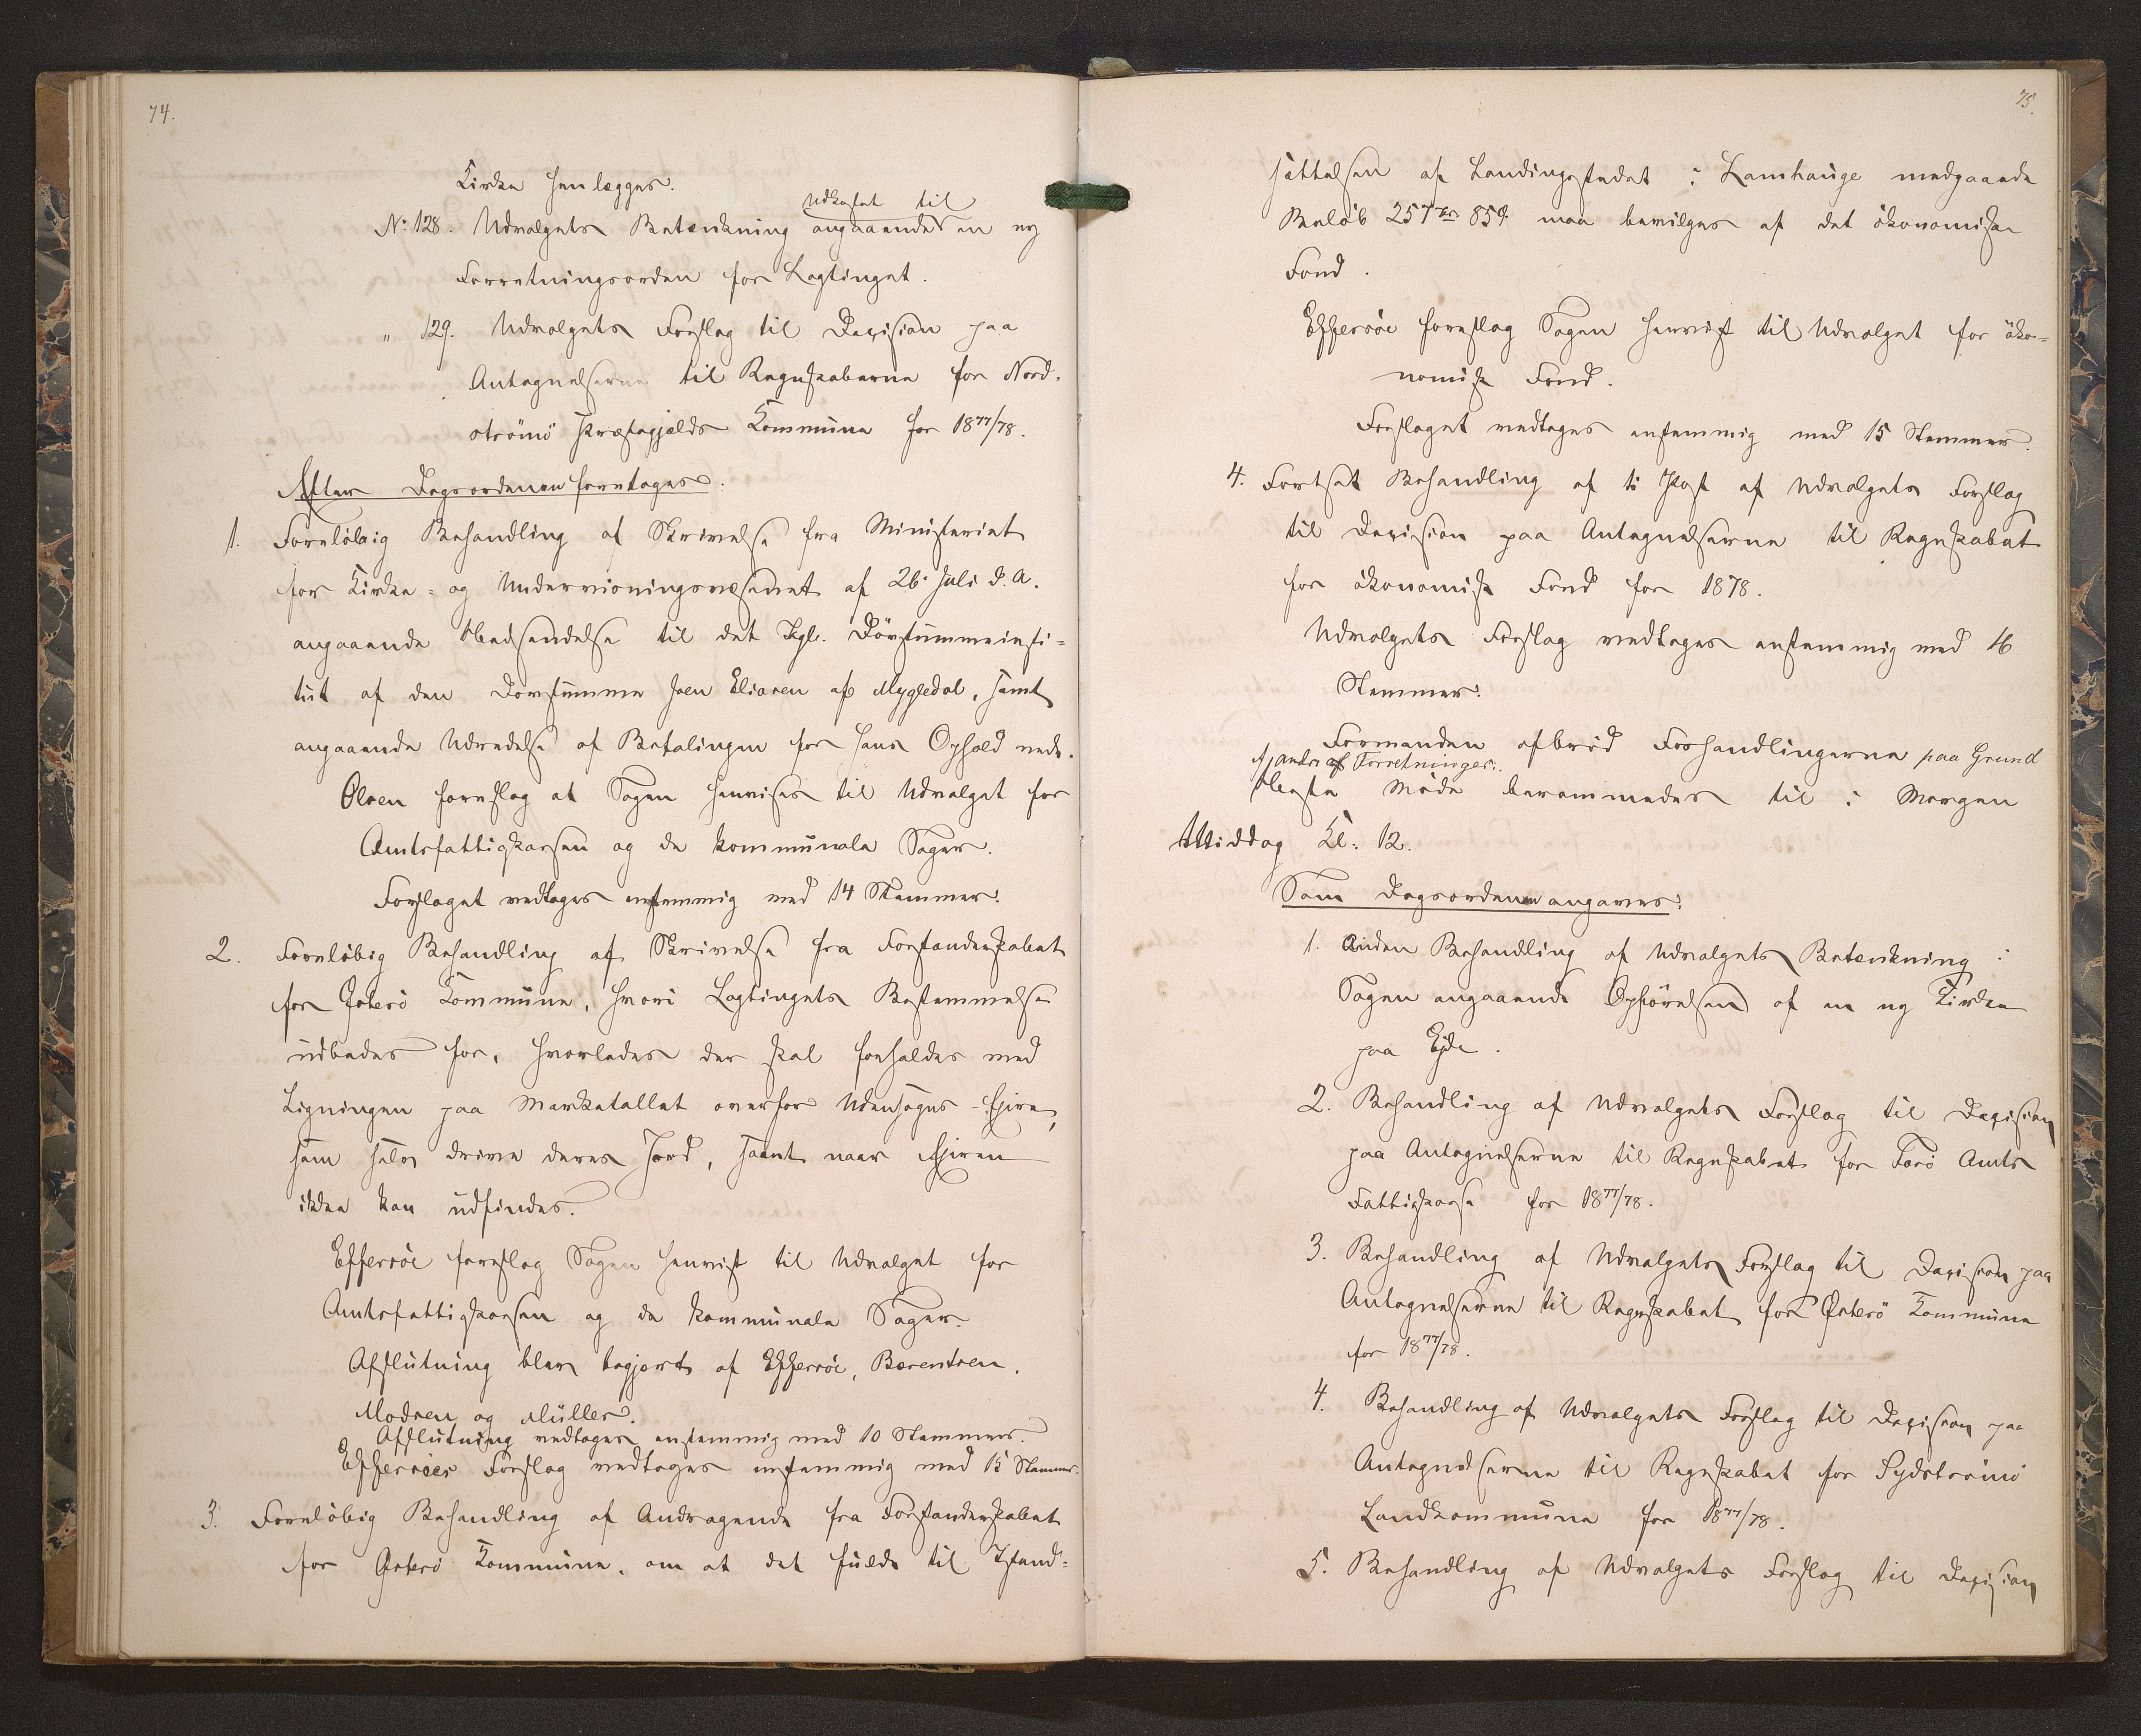 74.
Kirke henlægges.
Udkastet til
No 128. Udvalgets Betænkning angaaende en ny
Forretningsorden for Lagtinget.
" 129. Udvalgets Forslag til Decision paa
Antegnelserne til Regnskaberne for Nord-
strömö Præstegjælds Kommune for 1877/78.
Efter Dagsordenen foretages:
1. Foreløbig Behandling af Skrivelse fra Ministeriet
for Kirke- og Undervisningsvæsenet af 26. Juli d. A.
angaaende Nedsendelse til det Kgl. Døvstummeinsti-
tut af den Døvstumme Joen Eliasen af Mygledal, samt
angaaende Udredelse af Betalingen for hans Ophold neds.
Olsen foreslog at Sagen henvises til Udvalget for
Amtsfattigkassen og de kommunale Sager.
Forslaget vedtoges enstemmig med 14 Stemmer.
2. Foreløbig Behandling af Skrivelse fra Forstanderskabet
for Østerö Kommune, hvori Lagtingets Bestemmelse
udbedes for, hvorledes der skal forholdes med
Ligningen paa Marketallet overfor Udensogns-Ejere,
som selv drive deres Jord, samt naar Ejeren
ikke kan udfindes.
Effersöe foreslog Sagen henvist til Udvalget for
Amtsfattigkassen og de kommunale Sager.
Afslutning blev begjert af Effersöe, Bærentsen,
Madsen og Müller.
Afslutning vedtoges enstemmig med 10 Stemmer.
Effersöes Forslag vedtoges enstemmig med 15 Stemmer.
3. Foreløbig Behandling af Andragende fra Forstanderskabet
for Østerö Kommune, om at det fulde til Istand-
75.
sættelsen af Landingsstedet i Lamhauge medgaaede
Beløb 257 Kr 85 Ø. maa bevilges af det økonomiske
Fond.
Effersöe foreslog Sagen henvist til Udvalget for öko-
nomisk Fond.
Forslaget vedtoges enstemmig med 15 Stemmer.
4. Fortsat Behandling af 4: Post af Udvalgets Forslag
til Decision paa Antegnelserne til Regnskabet
for økonomisk Fond for 1878.
Udvalgets Forslag vedtoges enstemmig med 16
Stemmer.
Formanden afbrød Forhandlingerne paa Grund
af andre Forretninger.
Neste Møde berammedes til i Morgen
Middag Kl. 12.
Som Dagsordenen angaves:
1. Anden Behandling af Udvalgets Betænkning i
Sagen angaaende Opførelsen af en ny Kirke
paa Ejde.
2. Behandling af Udvalgets Forslag til Decision
paa Antegnelserne til Regnskabet for Færö Amts
Fattigkasse for 1877/78.
3. Behandling af Udvalgets Forslag til Decision paa
Antegnelserne til Regnskabet for Østerö Kommune
for 1877/78.
4. Behandling af Udvalgets Forslag til Decision paa
Antegnelserne til Regnskabet for Sydströmö
Landkommune for 1877/78.
5. Behandling af Udvalgets Forslag til Decision